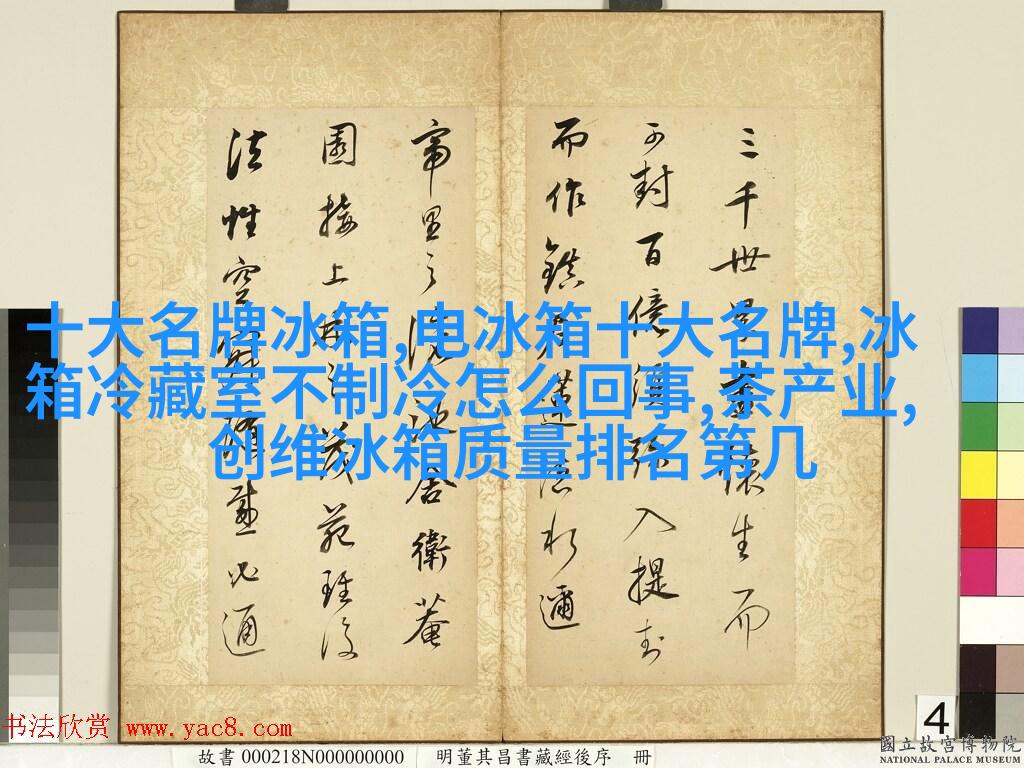 三千世界懷生而
可封百億須弥入提封
而作鎮蓮於邇
帝里之池舍衛菴
園接上林之茂苑
法性空通
十大名牌冰箱,电冰箱十大名牌,冰
箱冷藏室不制冷怎么回事,茶产业,
创维冰箱质量排名第几
书法欣赏 www.yac8.com
故書 000218N000000000 明董其昌書藏經後序 冊
4
國立故宮博物院
NATIONAL PALACE MUSEUM